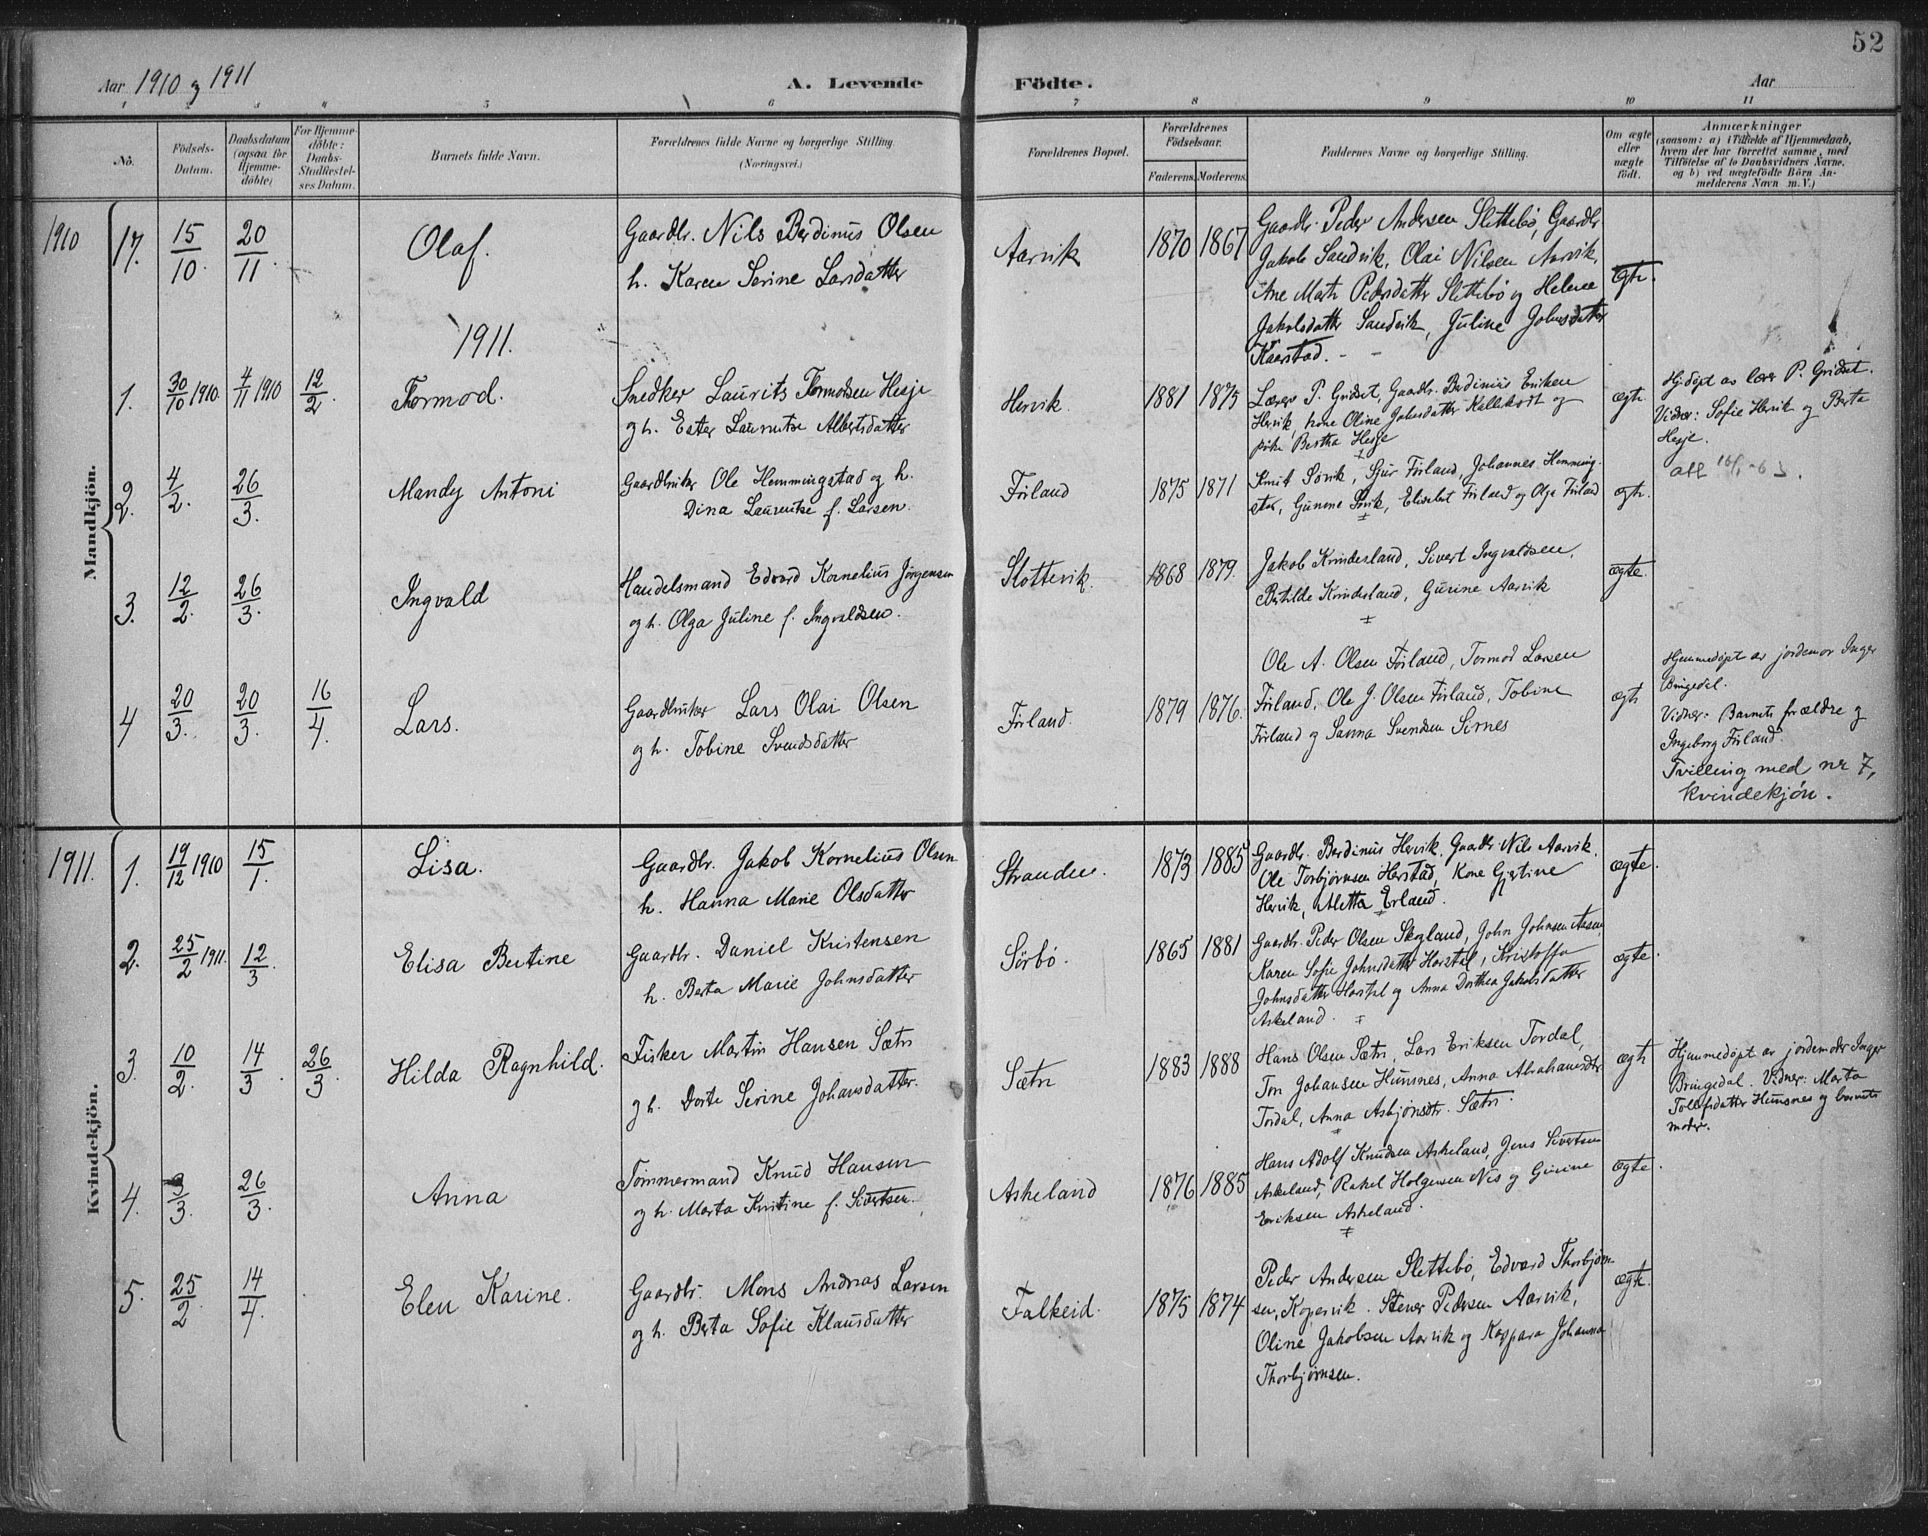 52
Aar 1910 og 1911
A. Levende Födte.
Aar
1 2 3 4 5 6 7 8 9 10 11
No.
Födsels-
Datum.
Daabsdatum
(ogsaa for
Hjemme-
döbte)
For Hjemme-
döbte:
Daabs-
Stadfæstel-
ses Datum.
Barnets fulde Navn.
Forældrenes fulde Navne og borgerlige Stilling
(Næringsvei.)
Forældrenes Bopæl.
Forældrenes
Födselsaar.
Faderens. Moderens.
Faddernes Navne og borgerlige Stilling.
Om ægte
eller
uægte
födt.
Anmærkninger
(saasom: a) i Tilfælde af Hjemmedaab,
hvem der har forrettet samme, med
Tilföielse af to Daabsvidners Navne,
og b) ved uægtefödte Börn An-
melderens Navn m. V.)
Mandkjön.
1910 17. 15/10. 20/11. Olaf.
Gaardbr. Nils Berdinus Olsen
h. Karen Serine Larsdatter
Aarvik 1870 1867
Gaardbr. Peder Andersen Slettebø, Gaardbr
Jakob Sandvik, Olai Nilsen Aarvik,
Ane Marth Pedersdatter Slettebø og Helene
Jakobsdatter Sandvik, Juline Johnsdatter
Kaarstad.
ægte.
1911.
1. 30/10 1910. 4/11 1910 12/2. Tormod.
Snedker Laurits Tormodsen Hesje
og h. Ester Laurentse Albertsdatter
Hervik. 1881 1875
Lærer P. Gridset, Gaardbr. Berdinius Eriksen
Hervik, kone Oline Johnsdatter Kallekodt og
pike Bertha Hesje
ægte.
Hjdøpt av lærer P. Gridset.
Vidner: Sofie Hervik og Berta
Hesje.
2. 4/2. 26/3. Mandy Antoni
Gaardbruker Ole Hemmingstad og h.
Dina Laurentse f. Larsen.
Førland 1875 1871
Knut Sørvik, Sjur Førland, Johannes Hemming-
stad, Gunine Sørvik, Elisabet Førland og Olga Førland
ægte.
3. 12/2. 26/3. Ingvald
Handelsmand Edvard Kornelius Jørgensen
og h. Olga Juline f. Ingvaldsen.
Slottevik. 1868 1879.
Jakob Kvindesland, Sivert Ingvaldsen,
Bertilde Kvindesland, Gurine Aarvik
ægte.
4 20/3. 20/3. 16/4. Lars.
Gaardbruker Lars Olai Olsen
og h. Tobine Svendsdatter
Førland. 1879 1876.
Ole A. Olsen Førland, Tormod Larsen
Førland, Ole J. Olsen Førland, Tobine
Førland og Sanna Svendsen Sirnes
ægte
Hjemmedøpt av jordemor Inger
Bringedal.
Vidner: Barnets forældre og
Ingeborg Førland.
Tvilling med nr 7,
kvindekjøn.
Kvindekjön.
1911. 1. 19/12 1910 15/1. Lisa.
Gaardbr. Jakob Kornelius Olsen
h. Hanna Marie Olsdatter
Stranden. 1873 1885
Gaardbr. Berdinus Hervik. Gaardbr Nils Aarvik.
Ole Torbjørnsen Harstad, Kone Gjertine
Hervik, Aletta Erland.
ægte.
2. 25/2 1911. 12/3. Elisa Bertine
Gaardbr. Daniel Kristensen
h. Berta Marie Johnsdatter
Sørbø. 1865 1881
Gaardbr. Peder Olsen Skogland, John Johnsen Aasen,
Karen Sofie Johnsdatter Harstad, Kristoffa
Johnsdatter Harstad og Anna Dorthea Jakobsdatter
Askeland.
ægte.
3. 10/2. 14/3. 26/3. Hilda Ragnhild.
Fisker Martin Hansen Sætre
og h. Dorte Serine Johansdatter.
Sætre 1883 1888
Hans Olsen Sætre, Lars Eriksen Tordal,
Ton Johansen Hunsnes, Anna Abrahamsdtr.
Tordal, Anna Asbjønsdtr. Sætre.
ægte
Hjemmedøpt av jordemoder Inger
Bringedal. Vidner: Marta
Tollefsdatter Hunsnes og barnets
moder.
4. 3/3. 26/3. Anna
Tømmermand Knud Hansen
og h. Marta Kristine f. Sivertsen.
Askeland 1876 1885
Hans Adolf Knudsen Askeland, Jens Sivertsen
Askeland, Rakel Holgersen Nes og Gurine
Eriksen Askeland.
ægte.
5. 25/2. 14/4. Elen Karine.
Gaardbr. Mons Andreas Larsen
og h. Berta Sofie Klausdatter
Falkeid. 1875 1874
Peder Andersen Slettebø, Edvard Thorbjørn-
sen, Kopervik. Stener Pedersen Aarvik,
Oline Jakobsen Aarvik og Kaspara Johanna
Thorbjørnsen.
ægte.